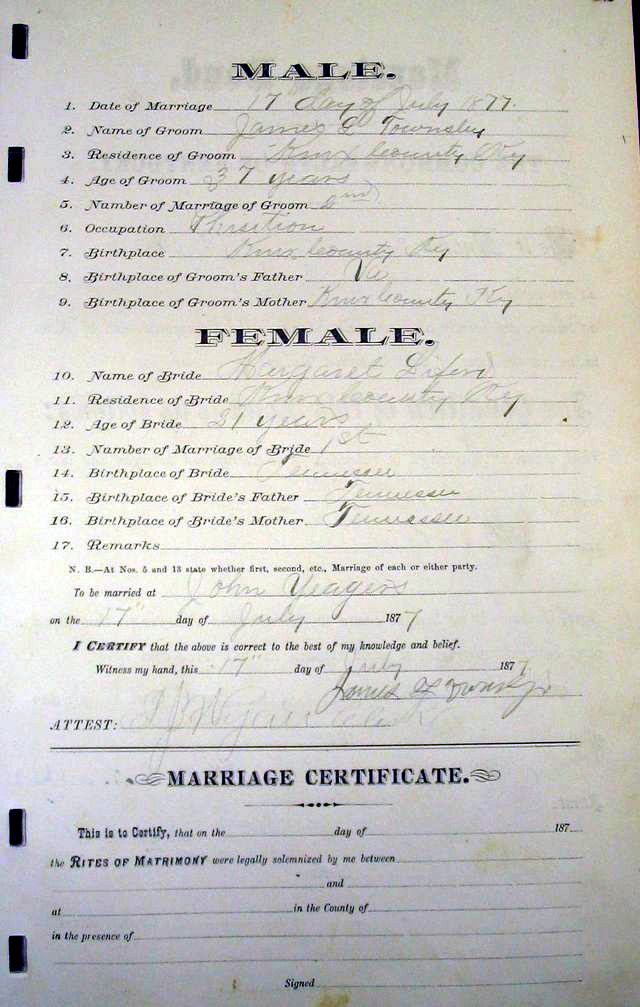 MALE.
1. Date of Marriage 17" day of July 1877.
2. Name of Groom James Townsley
3. Residence of Groom Knox County Ky
4. Age of Groom 37 years
5. Number of Marriage of Groom 2nd
6. Occupation Phisition
7. Birthplace Knox County Ky
8. Birthplace of Groom's Father Va
9. Birthplace of Groom's Mother Knox County Ky
FEMALE.
10. Name of Bride Margaret
11. Residence of Bride Knox County Ky
12. Age of Bride 21 years
13. Number of Marriage of Bride 1st
14. Birthplace of Bride Tennessee
15. Birthplace of Bride's Father Tennessee
16. Birthplace of Bride's Mother Tennessee
17. Remarks
N. B.—At Nos. 5 and 13 state whether first, second, etc., Marriage of each or either party.
To be married at John Yeagers
on the 17" day of July 1877
I CERTIFY that the above is correct to the best of my knowledge and belief.
Witness my hand, this 17" day of July 1877
James
ATTEST:
MARRIAGE CERTIFICATE.
This is to Certify, that on the day of 187
the RITES OF MATRIMONY were legally solemnized by me between
and
at in the County of
in the presence of
Signed